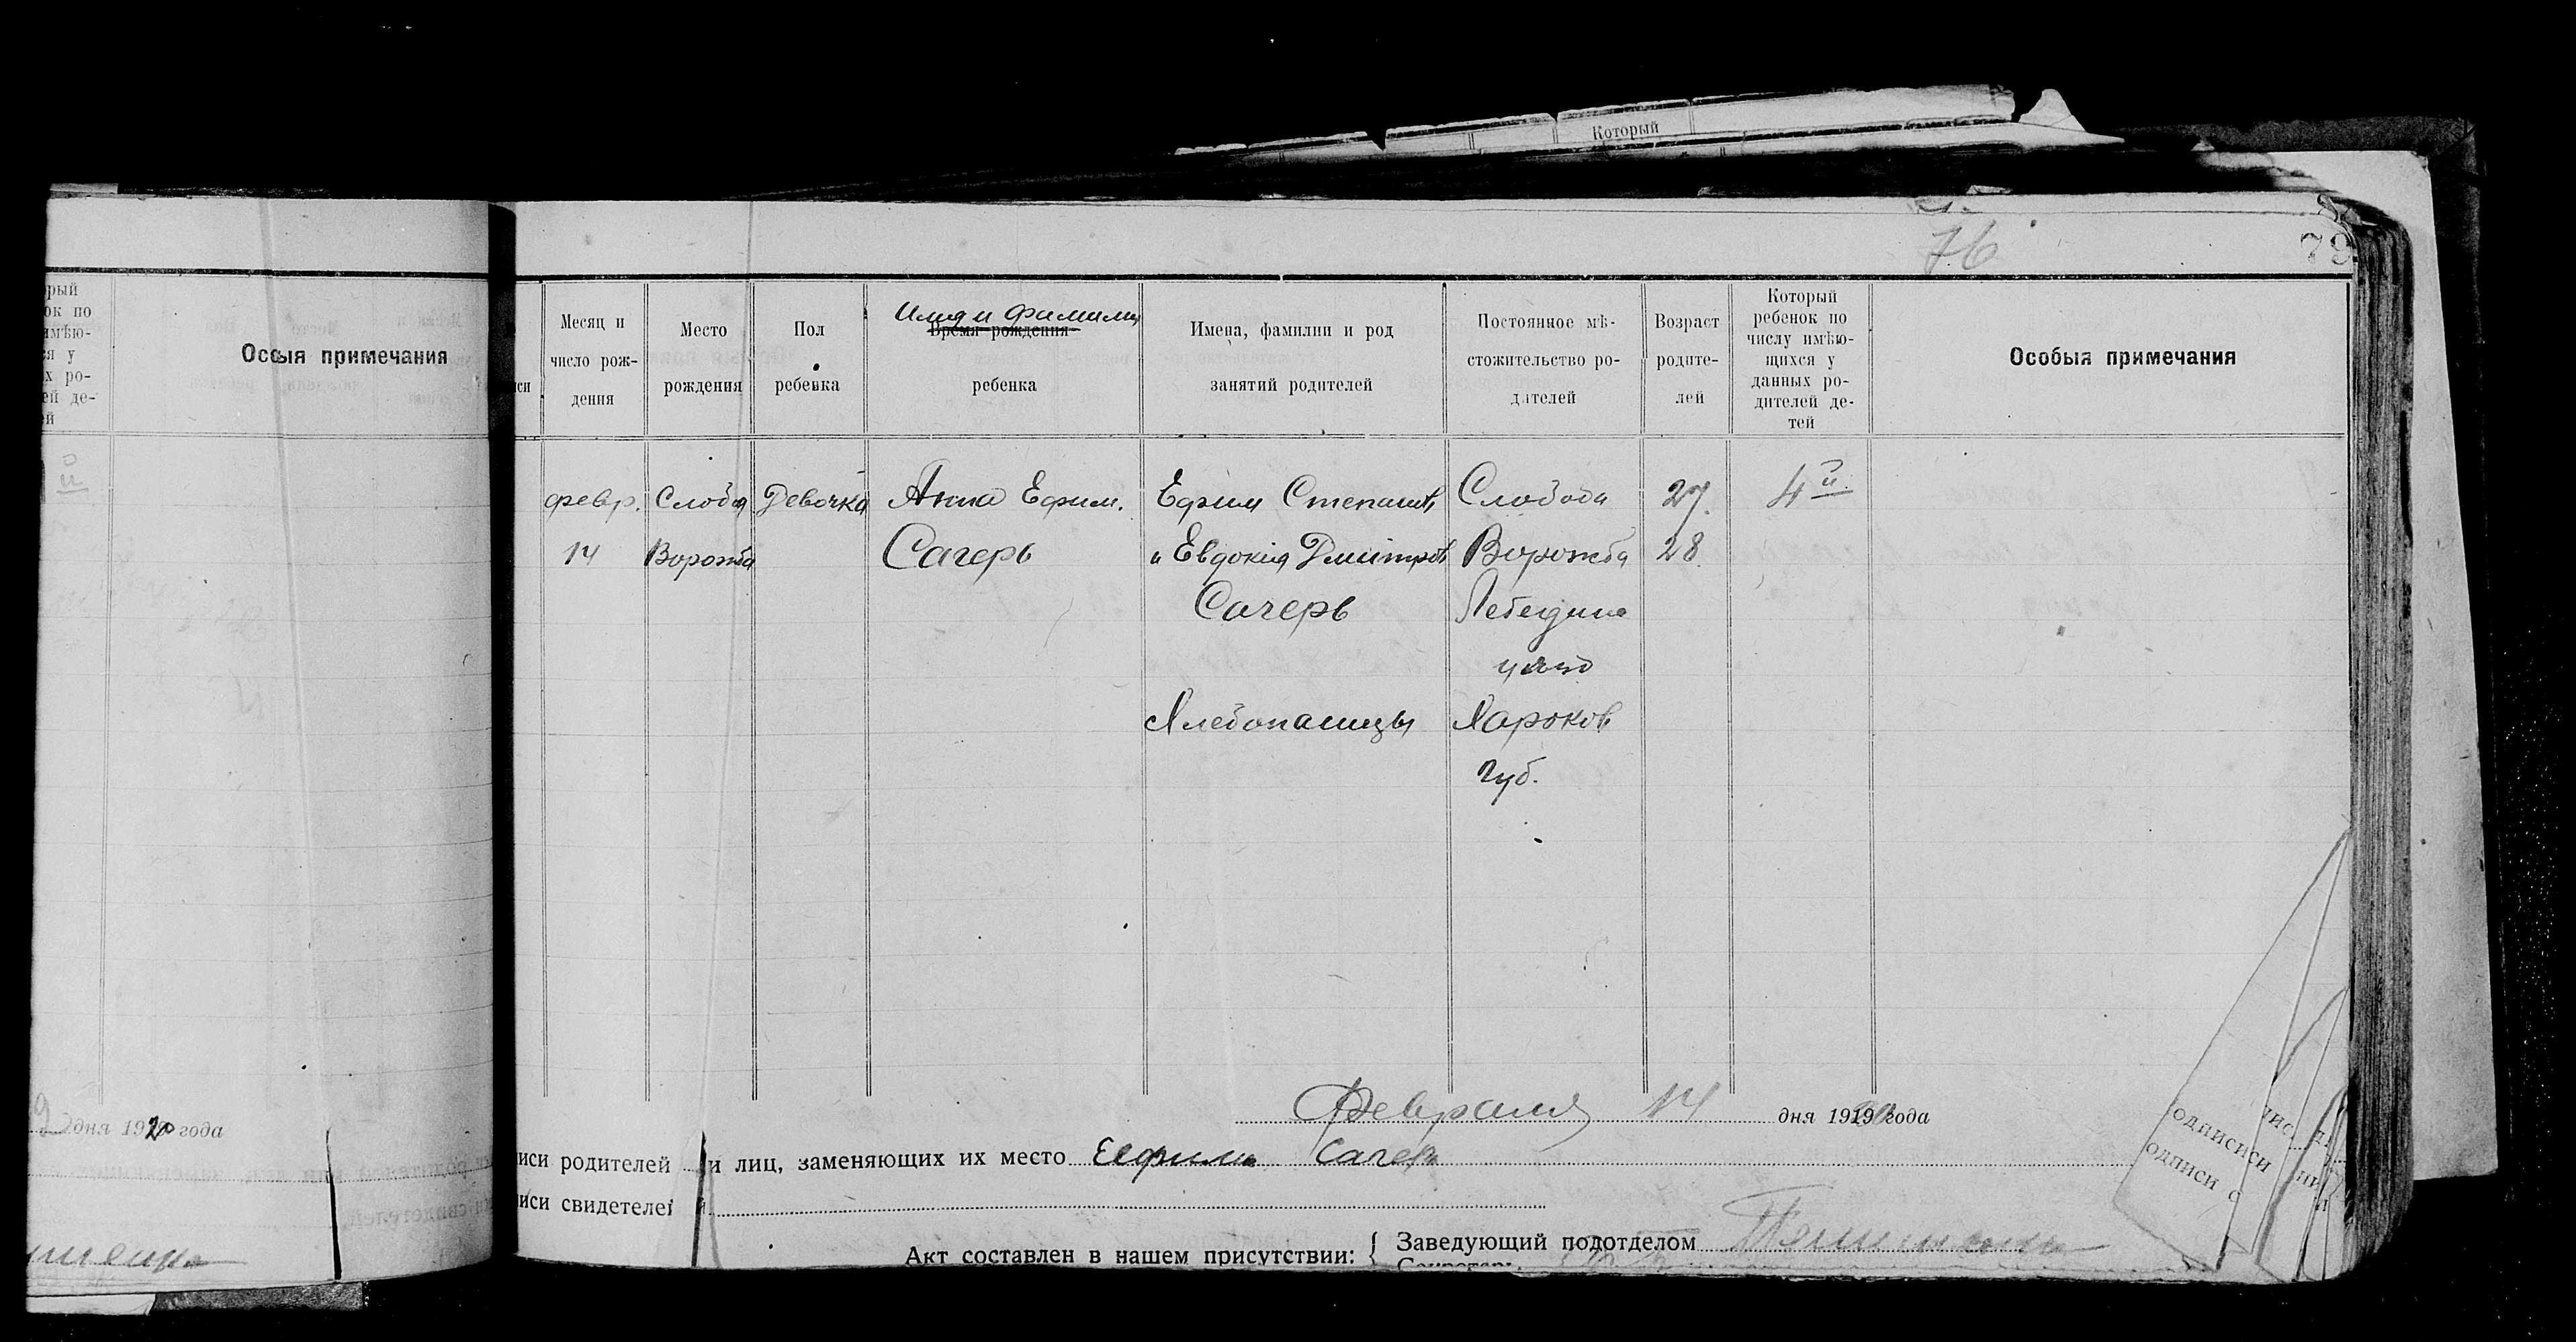 Который
76
79
рый
ок по
имѣю-
ся у
х ро-
ей де-
ей
Особыя примечания
Месяц и
число рож-
дения
Место
рождения
Пол
ребенка
Имя и Фамилия
Время рождения
ребенка
Имена, фамилии и род
занятий родителей
Постоянное мѣ-
стожительство ро-
дителей
Возраст
родите-
лей
Который
ребенок по
числу имѣю-
щихся у
данных ро-
дителей де-
тей
Особыя примечания
февр. Слобо Девочка Анна Ефим. Ефим Степанов Слобода 27. 4й
14 Ворожба Сагерь и Евдокия Дмитров Ворожба 28.
Сагерь Лебедин
уезд
Хлебопашцы Харьков
Губ.
Февраля 14 дня 1920 года
дня 1920 года
иси родителей и лиц, заменяющих их место Ефим Сагерь
иси свидетелей
Акт составлен в нашем присутствии: Заведующий подотделом
Секретарь
одписи
одписи с